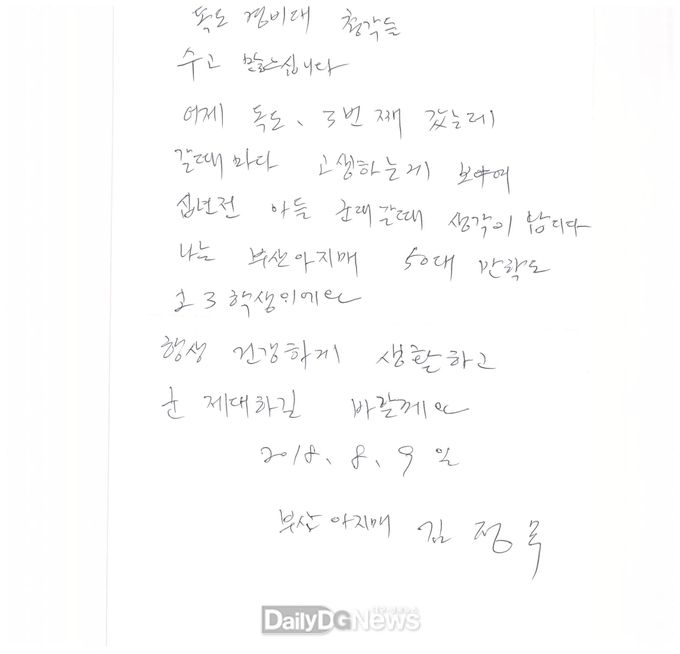 독도 경비대 청각들
수고 많으십니다
어제 독도、3번째 갔는데
갈때마다 고생하는게 보여
십년전 아들 군대갈때 생각이 납니다
나는 부산아지매 50대 만학도
고3학생이에요
항상 건강하게 생활하고
군 제대하길 바랄께요
2018、8、9일
부산아지매 김정
DailyDGNews